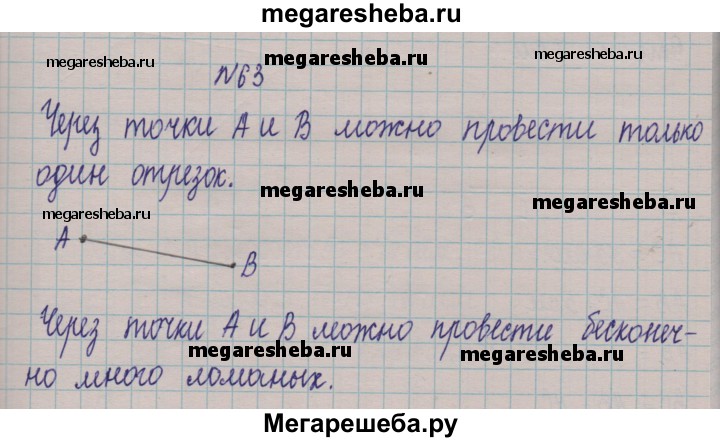 megaresheba.ru
megaresheba.ru megaresheba.ru megaresheba.ru
№63
Через точки А и В можно провести только
один отрезок.
megaresheba.ru megaresheba.ru
megaresheba.ru
А В
Через точки А и В можно провести бесконеч-
megaresheba.ru megaresheba.ru
но много ломаных.
Мегарешеба.ру